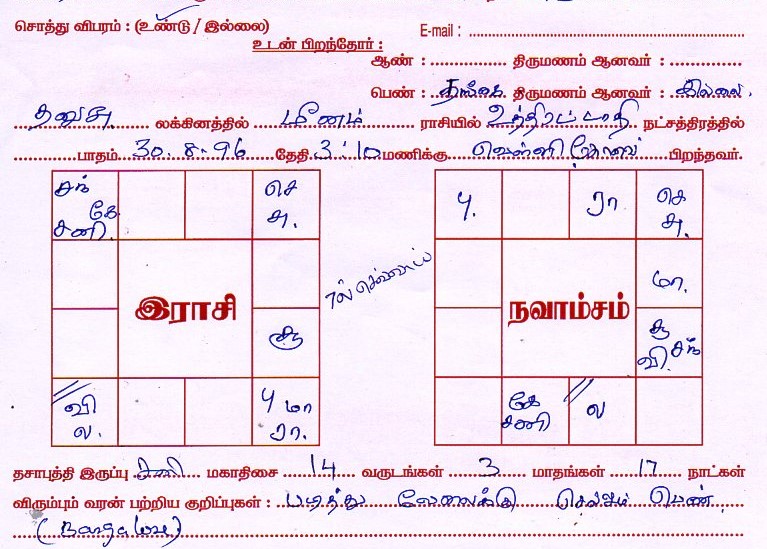 சொத்து விபரம் : (உண்டு / இல்லை) E-mail : ....................
உடன் பிறந்தோர் :
ஆண் : .............. திருமணம் ஆனவர் : ..............
பெண் : தங்கை திருமணம் ஆனவர் : இல்லை.
தனுசு லக்கினத்தில் மீனம் ராசியில் உத்திரட்டாதி நட்சத்திரத்தில்
பாதம் 30.8.96 தேதி 3:10 மணிக்கு வெள்ளி கோவை பிறந்தவர்.
சந் கே சனி. செ சு.
பு. ரா செ சு.
7ல் செவ்வாய்
மா.
இராசி
நவாம்சம்
சூ
சூ வி. சந்
வி ல. பு மா ரா.
கே சனி ல
தசாபுத்தி இருப்பு சனி மகாதிசை 14 வருடங்கள் 3 மாதங்கள் 17 நாட்கள்
விரும்பும் வரன் பற்றிய குறிப்புகள் : படித்து வேலைக்கு செல்லும் பெண்
(Bangalore)